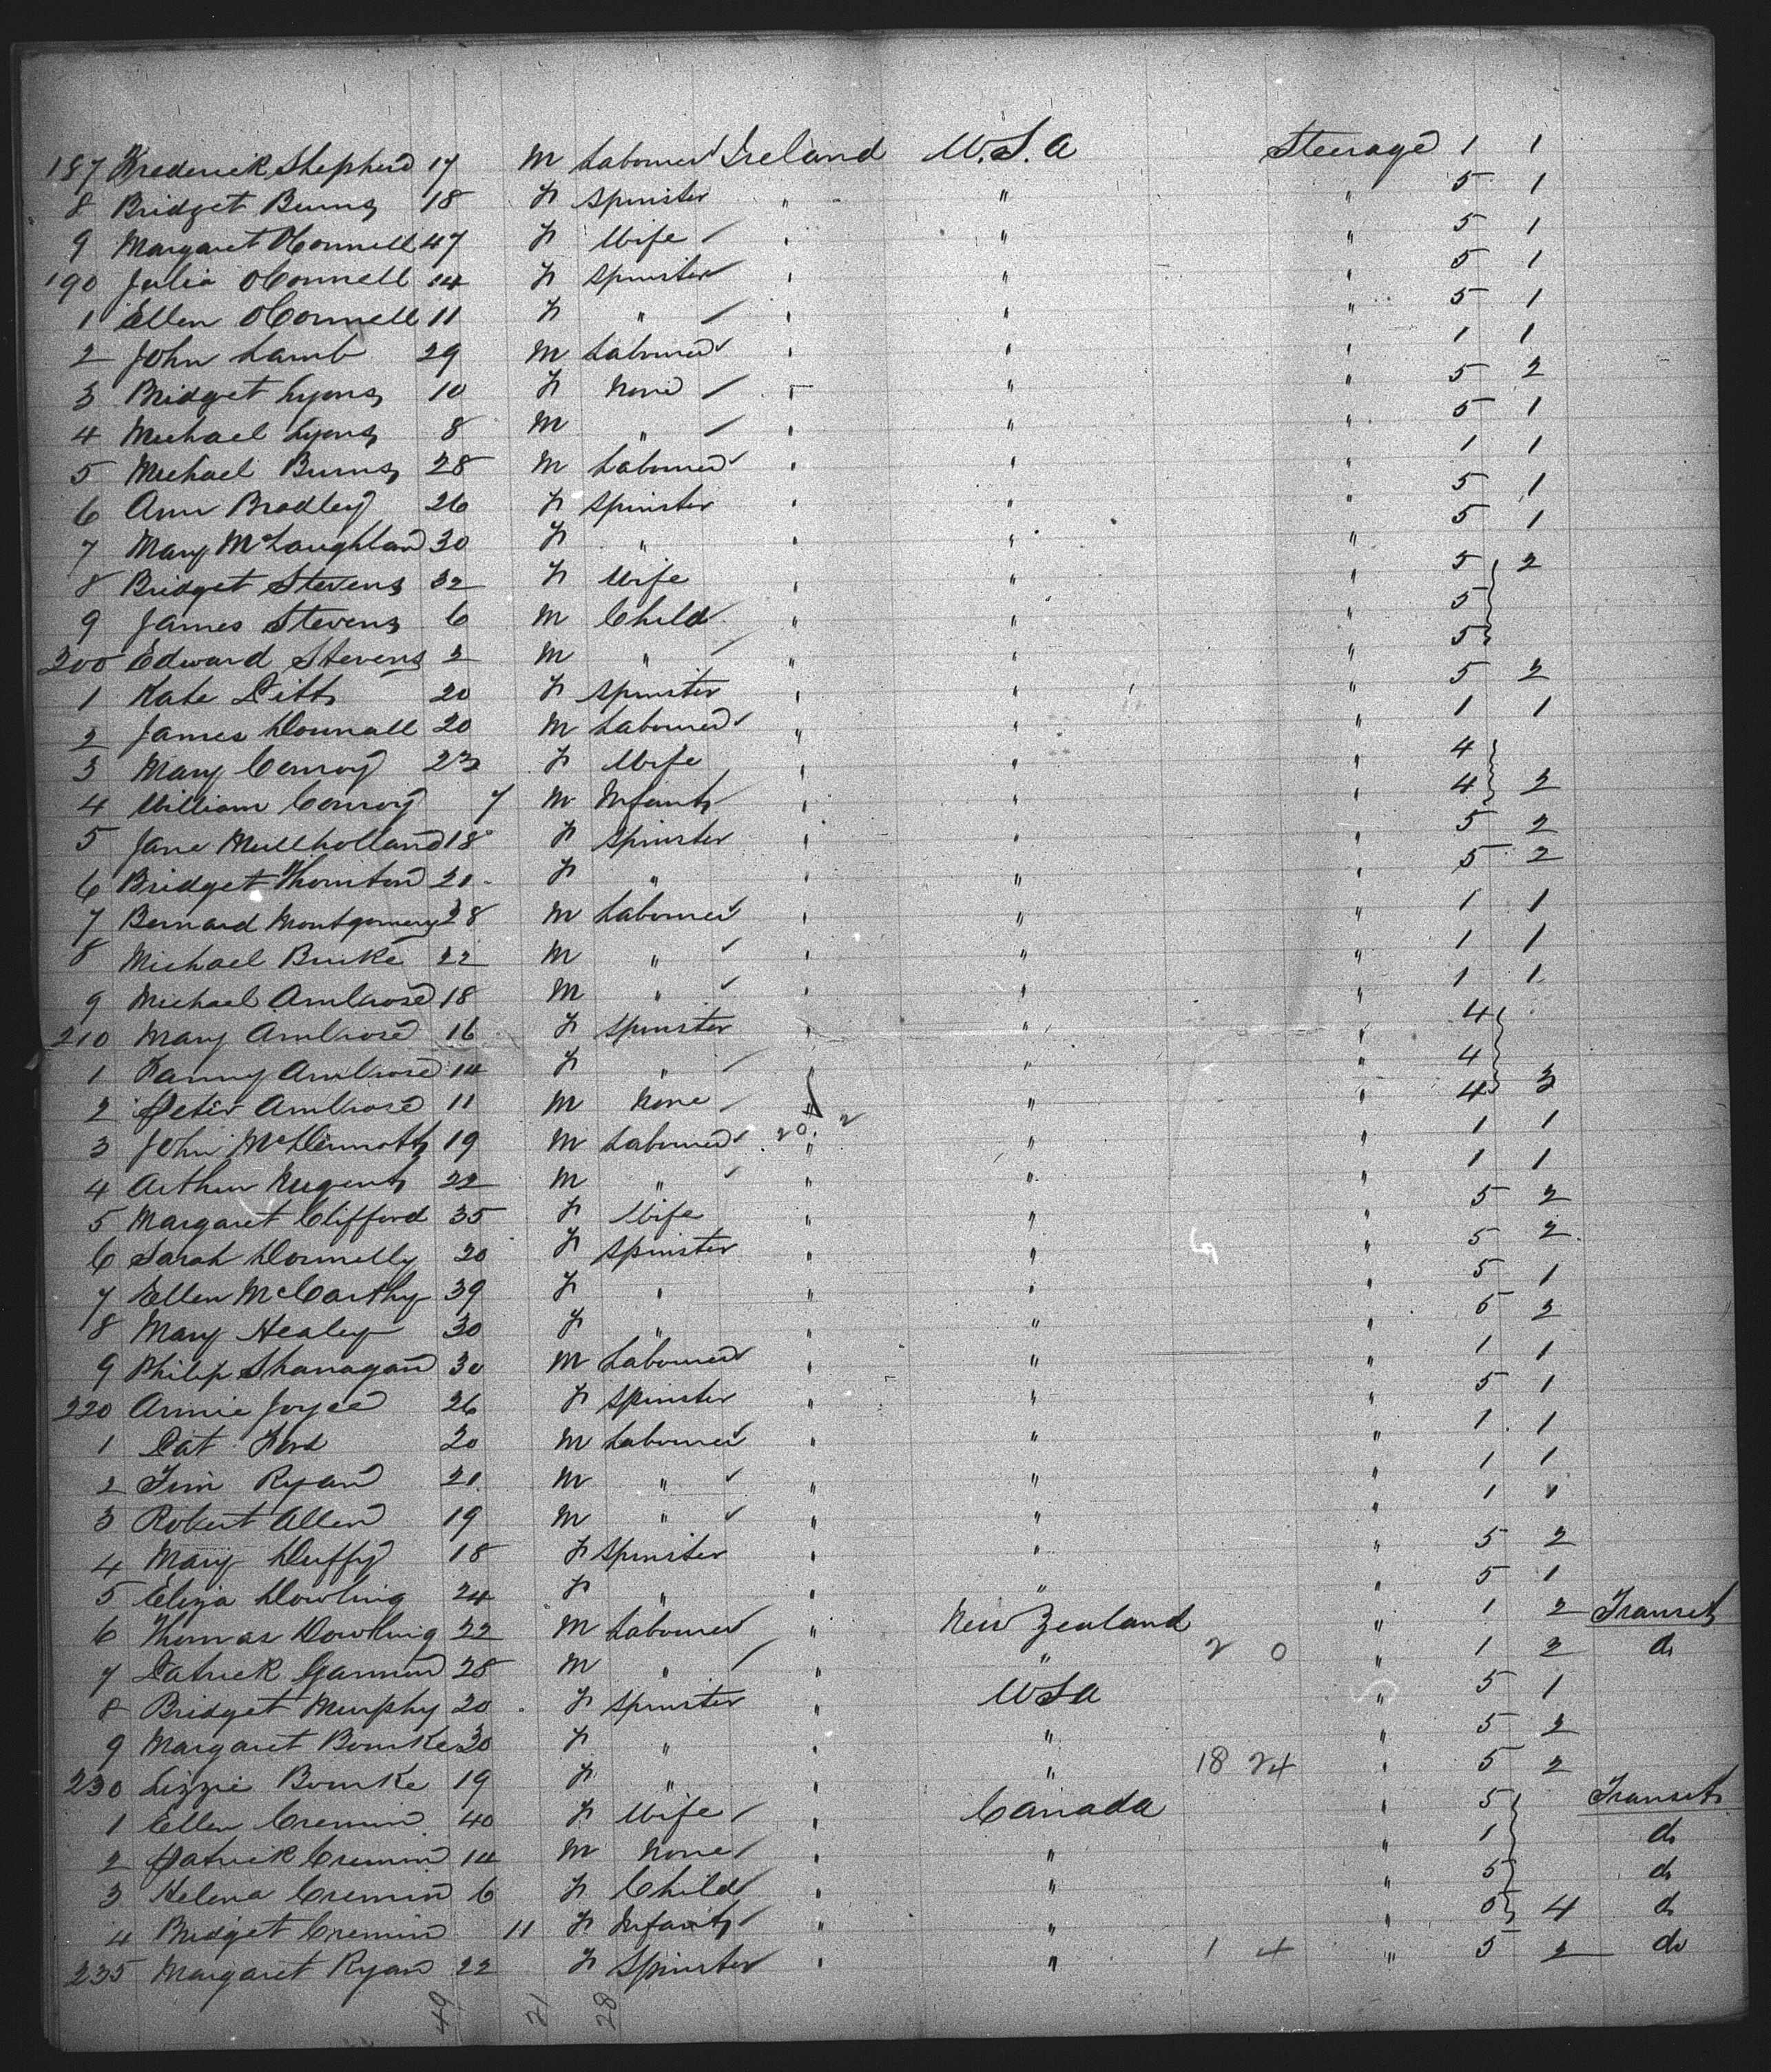 187 Frederick Shepherd 17 M Labourer Ireland U.S.A Steerage 1 1
8 Bridget Burns 18 F Spinster " " " 5 1
9 Margaret OConnell 47 F Wife " " " 5 1
190 Julia OConnell 14 F Spinster " " " 5 1
1 Ellen OConnell 11 F " " " " 5 1
2 John Lamb 29 M Labourer " " " 1 1
3 Bridget Lyons 10 F None " " " 5 2
4 Michael Lyons 8 M " " " " 5 1
5 Michael Burns 28 M Labourer " " " 1 1
6 Ann Bradley 26 F Spinster " " " 5 1
7 Mary McLaughlan 30 F " " " " 5 1
8 Bridget Stevens 32 F Wife " " " 5 2
9 James Stevens 6 M Child " " " 5
200 Edward Stevens 2 M " " " " 5
1 Kate Pitt 20 F Spinster " " " 5 2
2 James Donnall 20 M Labourer " " " 1 1
3 Mary Conroy 23 F Wife " " " 4
4 William Conroy 7 M Infant " " " 4 2
5 Jane Mullholland 18 F Spinster " " " 5 2
6 Bridget Thornton 21 F " " " " 5 2
7 Bernard Montgomery 28 M Labourer " " " 1 1
8 Michael Burke 22 M " " " " 1 1
9 Michael Ambrose 18 M " " " " 1 1
210 Mary Ambrose 16 F Spinster " " " 4
1 Fanny Ambrose 14 F " " " " 4
2 Peter Ambrose 11 M None " " " 4 3
3 John McDermott 19 M Labourer 20 " 2 " " 1 1
4 Arthur Nugent 22 M " " " " 1 1
5 Margaret Clifford 35 F Wife " " " 5 2
6 Sarah Donnelly 20 F Spinster " " " 5 2
7 Ellen McCarthy 39 F " " " " 5 1
8 Mary Healey 30 F " " " " 5 2
9 Philip Shanagan 30 M Labourer " " " 1 1
220 Annie Joyce 26 F Spinster " " " 5 1
1 Pat Ford 20 M Labourer " " " 1 1
2 Tim Ryan 21 M " " " " 1 1
3 Robert Allen 19 M " " " " 1 1
4 Mary Duffy 18 F Spinster " " " 5 2
5 Eliza Dowling 24 F " " " " 5 1
6 Thomas Dowling 22 M Labourer " New Zealand " 1 2 Transit
7 Patrick Gannon 28 M " " " 2 0 " 1 2 do
8 Bridget Murphy 20 F Spinster " USA " 5 1
9 Margaret Bourke 30 F " " " " 5 2
230 Lizzie Bourke 19 F " " " 18 24 " 5 2
1 Ellen Cremin 40 F Wife " Canada " 5 Transit
2 Patrick Cremin 14 M None " " " 1 do
3 Helena Cremin 6 F Child " " " 5 do
4 Bridget Cremin 11 F Infant " " " 5 4 do
235 Margaret Ryan 22 F Spinster " " 1 4 " 5 2 do
49 21 28